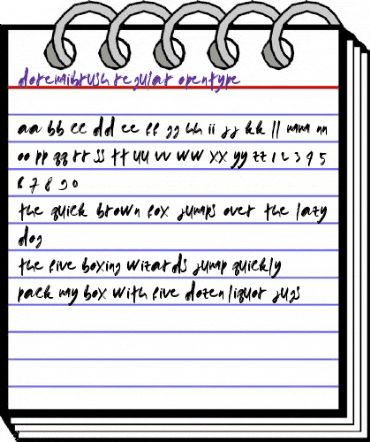 doremibrush regular opentype
aa bb cc dd ee ff gg hh ii jj kk ll mm nn
oo pp qq rr ss tt uu vv ww xx yy zz 1 2 3 4 5
6 7 8 9 0
the quick brown fox jumps over the lazy
dog
the five boxing wizards jump quickly
pack my box with five dozen liquor jugs